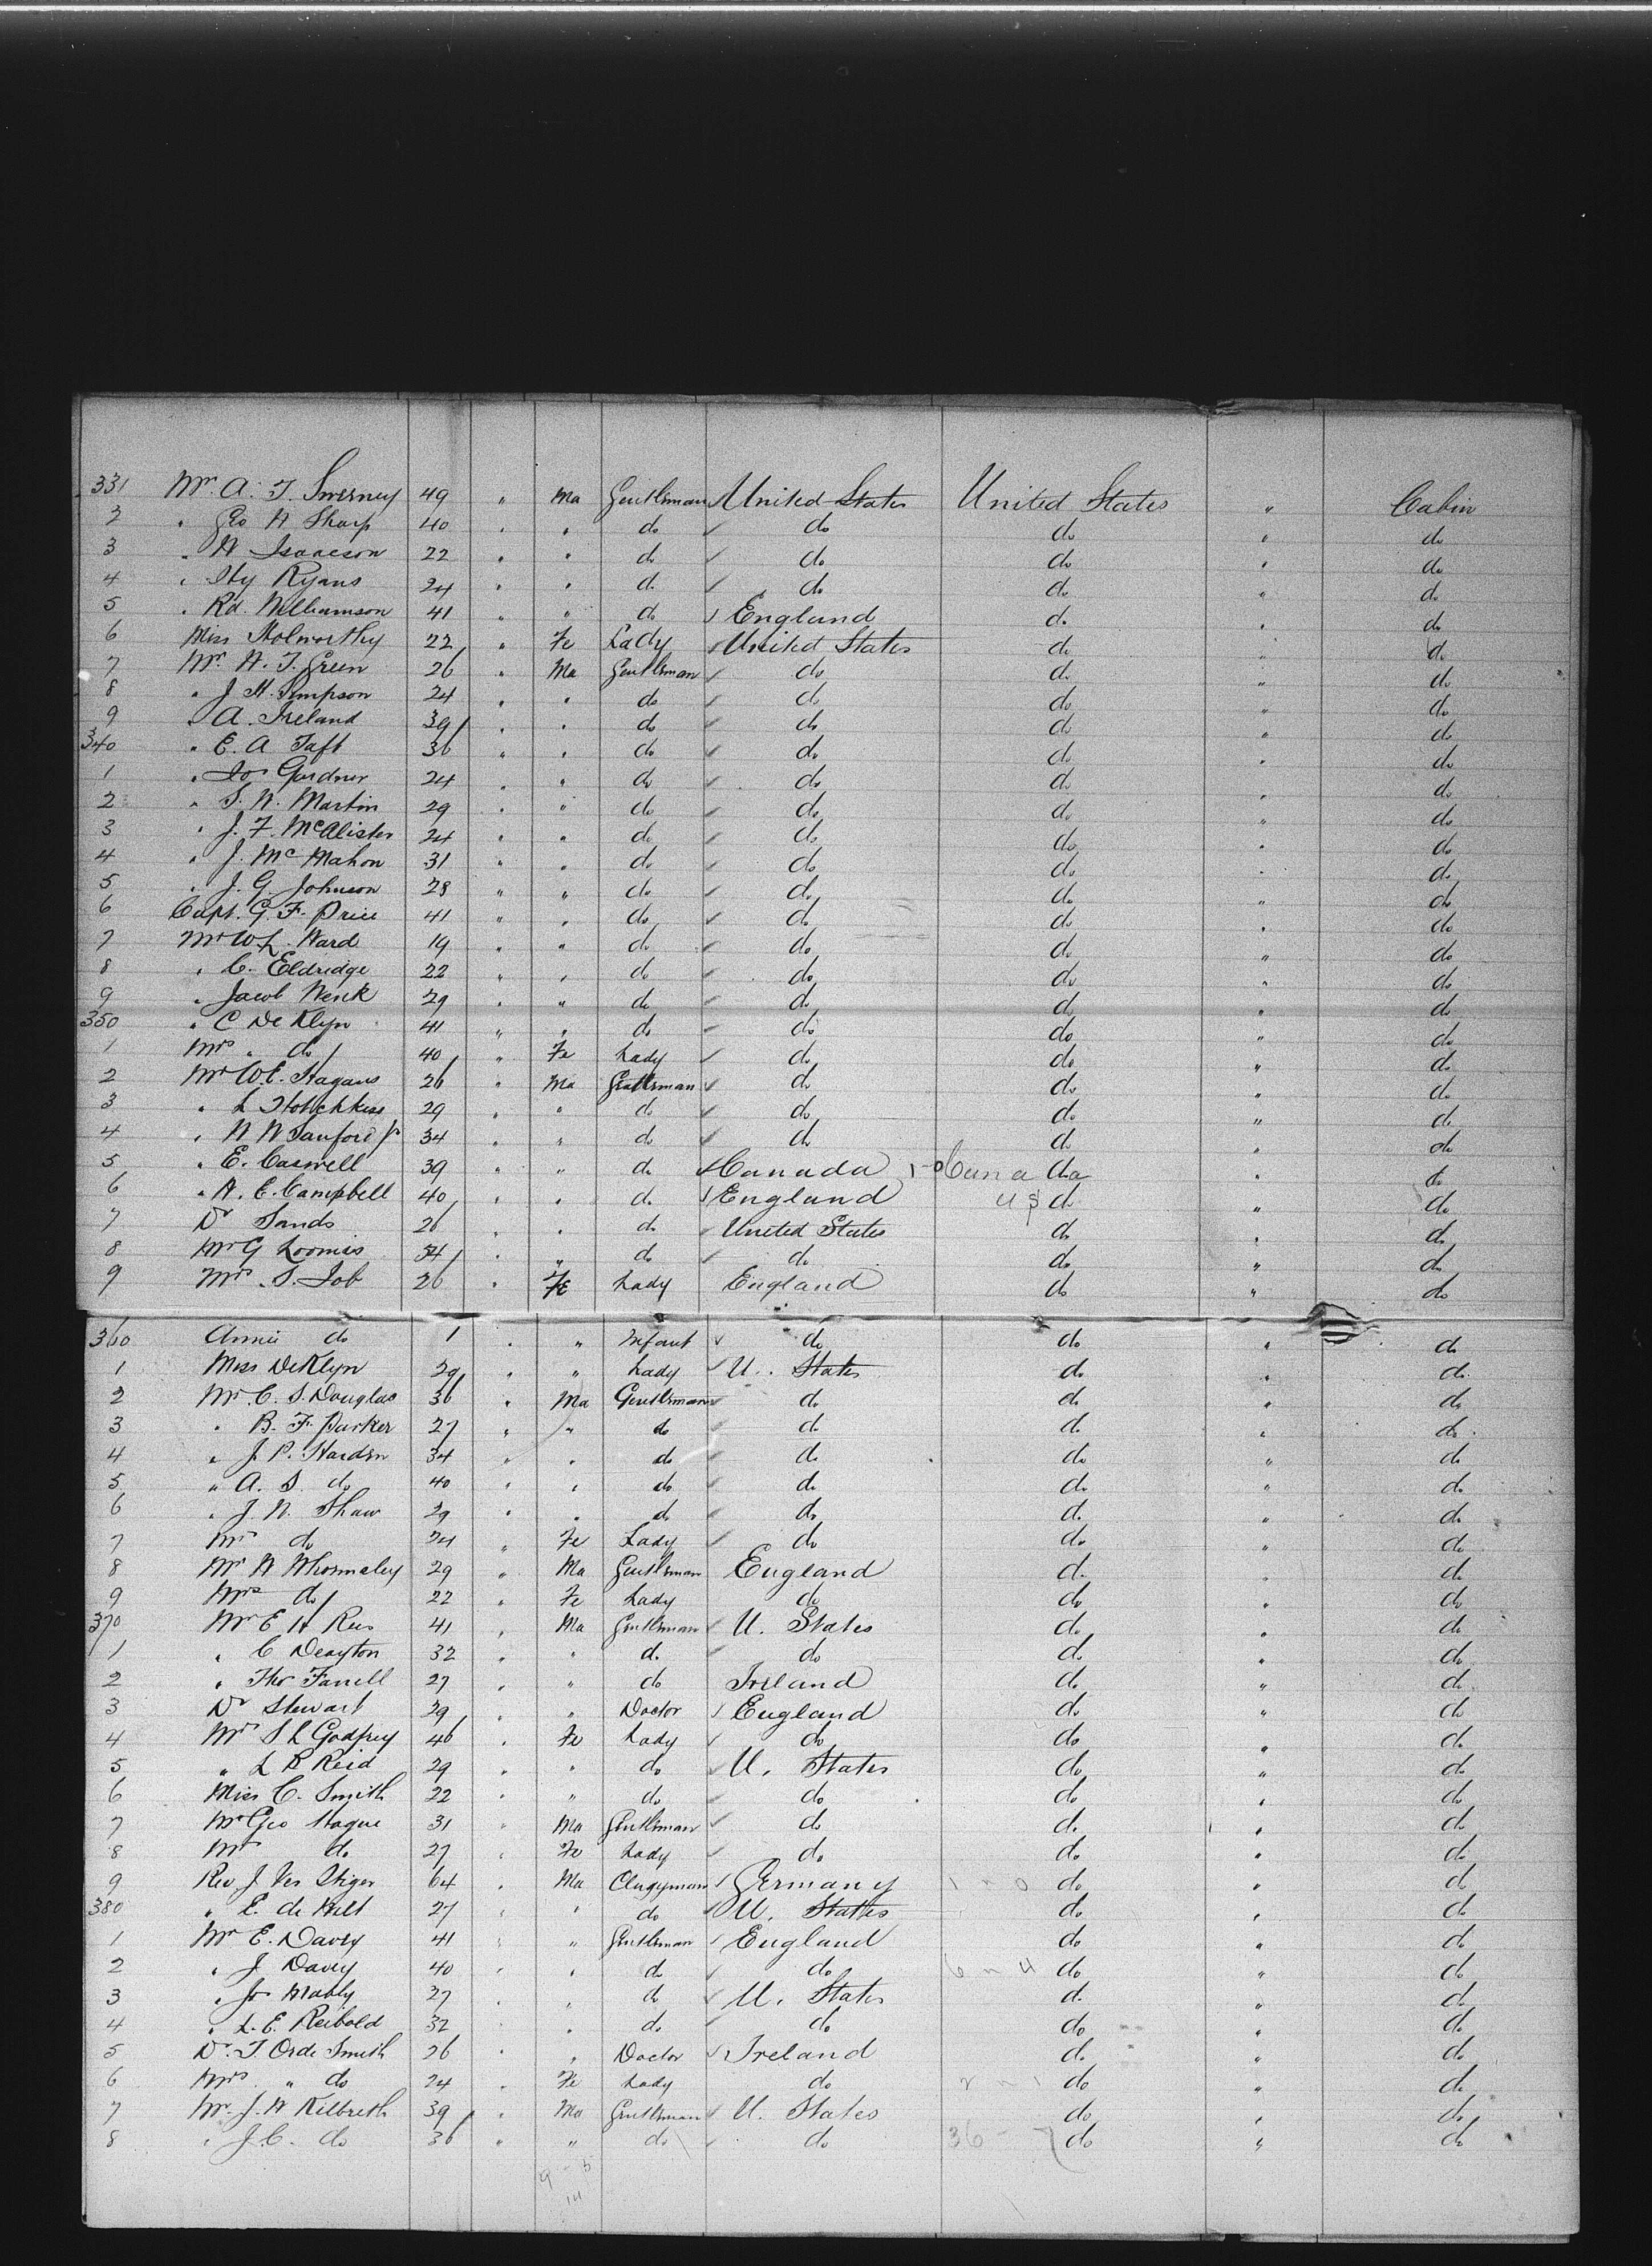 331 Mr. A. T. Swerney 49 " Ma Gentleman United States United States " Cabin
2 " Geo H Sharp 40 " " do do do " do
3 " H Isaacson 22 " " do do do " do
4 " Hy Ryans 24 " " do do do " do
5 " Rd. Williamson 41 " " do England do " do
6 Miss Holworthy 22 " Fe Lady United States do " do
7 Mr. H. T. Green 26 " Ma Gentleman do do " do
8 " J. H. Simpson 24 " " do do do " do
9 " A. Ireland 39 " " do do do " do
340 " E. A Taft 36 " " do do do " do
1 " Jos Gardner 24 " " do do do " do
2 " S. W. Martin 29 " " do do do " do
3 " J. F. McAlister 24 " " do do do " do
4 " J. Mc Mahon 31 " " do do do " do
5 " J. G. Johnson 28 " " do do do " do
6 Capt. G. F. Price 41 " " do do do " do
7 Mr W. L. Ward 19 " " do do do " do
8 " C. Eldridge 22 " " do do do " do
9 " Jacob Wenk 29 " " do do do " do
350 " C De Klyn 41 " " do do do " do
1 Mrs " do 40 " Fe Lady do do " do
2 Mr W. E. Hagans 26 " Ma Gentleman do do " do
3 " L Hotchkiss 29 " " do do do " do
4 " W W Sanford Jr 34 " " do do do " do
5 " E. Caswell 39 " " do Canada 1-0 Canada " do
6 " A. E. Campbell 40 " " do England U S do " do
7 Dr Sands 26 " " do United States do " do
8 Mr G Loomis 34 " " do do do " do
9 Mrs. S. Job 26 " Fe Lady England do " do
360 Annie do 1 " " Infant do do " do
1 Miss DeKlyn 29 " " Lady U. States do " do
2 Mr. C. S. Douglas 36 " Ma Gentleman do do " do
3 " B. F. Parker 27 " " do do do " do
4 " J. P. Harden 34 " " do do do " do
5 " A. S. do 40 " " do do do " do
6 " J. W. Shaw 29 " " do do do " do
7 Mrs do 24 " Fe Lady do do " do
8 Mr W Whormaley 29 " Ma Gentleman England do " do
9 Mrs do 22 " Fe Lady do do " do
370 Mr E H Rees 41 " Ma Gentleman U. States do " do
1 " C Drayton 32 " " do do do " do
2 " Thos Farrell 27 " " do Ireland do " do
3 Dr Stewart 29 " " Doctor England do " do
4 Mrs S L Godfrey 46 " Fe Lady do do " do
5 " L B Reid 29 " " do U. States do " do
6 Miss C. Smith 22 " " do do do " do
7 Mr Geo Hague 31 " Ma Gentleman do do " do
8 Mrs do 27 " Fe Lady do do " do
9 Rev J. Ver Stiger 64 " Ma Clergyman Germany 1 n 0 do " do
380 " E. de Witt 27 " " do U. States do " do
1 Mr E. Davey 41 " " Gentleman England do " do
2 " J Davey 40 " " do do 6 n 4 do " do
3 " Jos Mably 27 " " do U. States do " do
4 " L. E. Reibold 32 " " do do do " do
5 Dr. T. Orde Smith 26 " " Doctor Ireland do " do
6 Mrs " do 24 " Fe Lady do 2 n 1 do " do
7 Mr. J. W Kilbreth 39 " Ma Gentleman U. States do " do
8 " J. C. do 36 " " do do 36 - 7 do " do
9 - 5
14